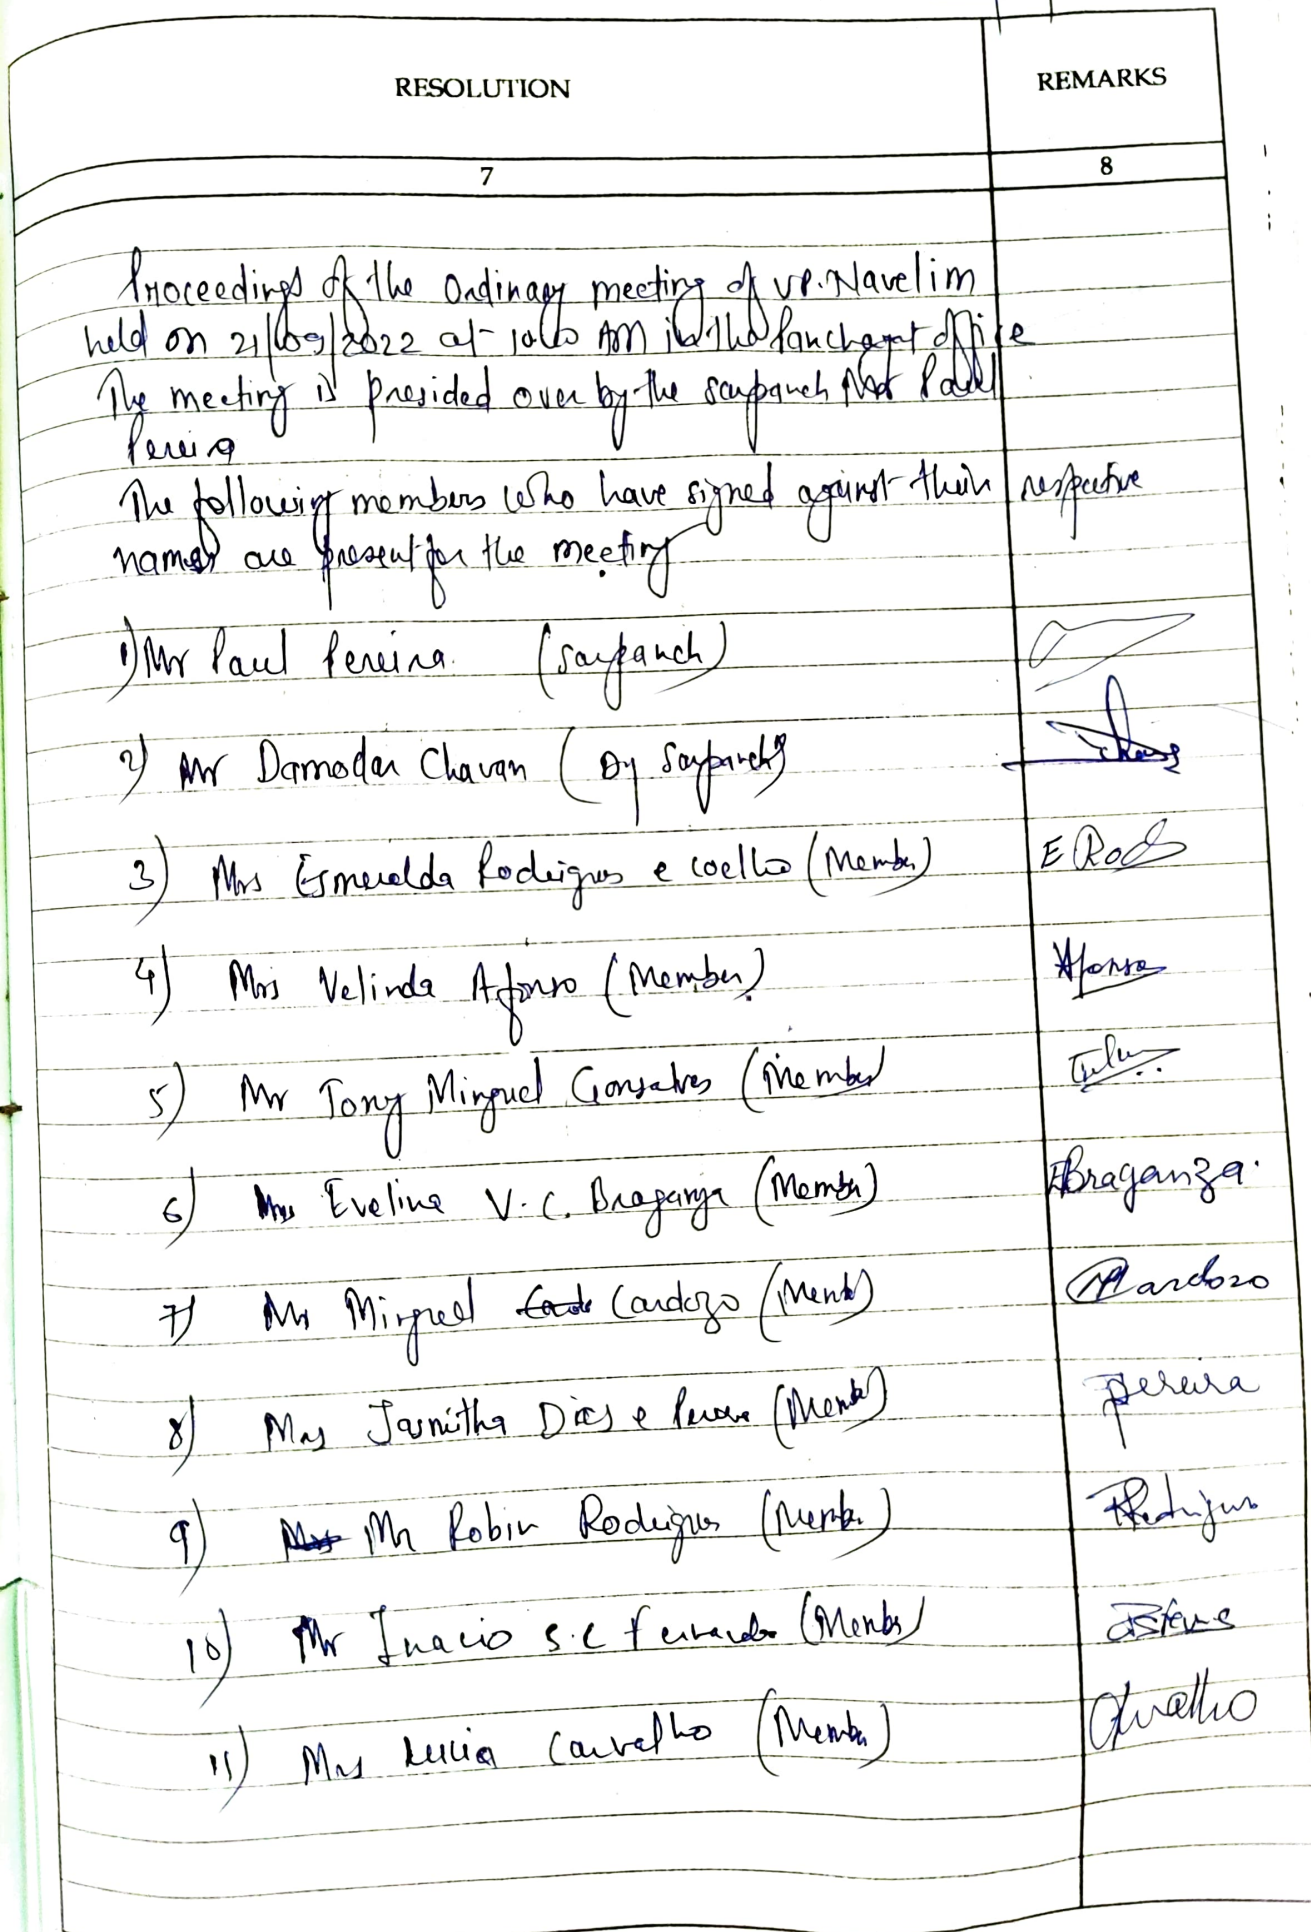 RESOLUTION REMARKS
7 8
Proceedings of the Ordinary meeting of V.P. Navelim
held on 21/09/2022 at 10.00 AM in the Panchayat office
The meeting is presided over by the Sarpanch Paul
Pereira
The following members who have signed against their respective
names are present for the meeting
1) Mr Paul Pereira. (Sarpanch)
2) Mr Damodar Chavan (Dy Sarpanch)
3) Mrs Esmeralda Rodrigues e Coelho (Member) E Rod
4) Mrs Velinda Afonso (Member) Afonso
5) Mr Tony Minguel Gonsalves (Member)
6) Mrs Eveline V. C. Braganza (Member) EBraganza
7) Mr Minguel Cardozo (Member) MCardozo
8) Mrs Jasmitha Dias e Pereira (Member) Pereira
9) Mr Robin Rodrigues (Member) RRodrigues
10) Mr Inacio S.C Fernandes (Member)
11) Mrs Lucia Carvalho (Member)